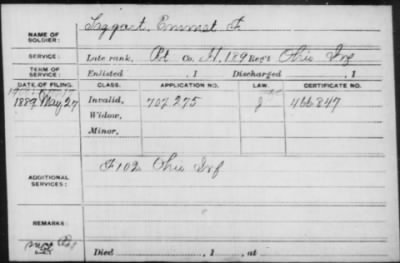 Taggart, Emmet F
NAME OF SOLDIER:
SERVICE: Late rank, Pvt Co. H, 189 Reg't Ohio Inf
TERM OF SERVICE: Enlisted , 1 Discharged , 1
DATE OF FILING. CLASS. APPLICATION NO. LAW. CERTIFICATE NO.
1889 May 27 Invalid, 707 275 J 466 847
Widow,
Minor,
ADDITIONAL SERVICES: F 102 Ohio Inf
REMARKS:
Died , 1 , at